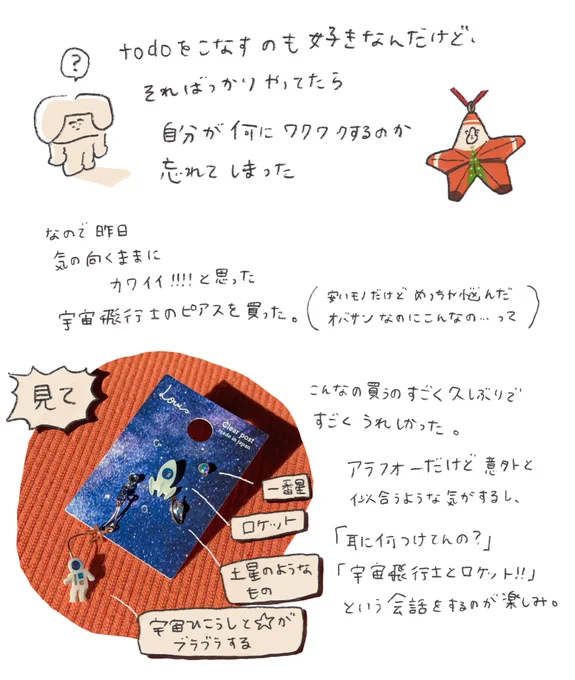 ?
todoをこなすのも好きなんだけど、
そればっかりやってたら
自分が何にワクワクするのか
忘れてしまった
なので昨日
気の向くままに
カワイイ!!!!と思った
宇宙飛行士のピアスを買った。
(安いモノだけどめっちゃ悩んだ
オバサンなのにこんなの…って)
見て
Lou's
Clear post
made in Japan
一番星
ロケット
土星のような
もの
宇宙ひこうしと☆が
ブラブラする
こんなの買うのすごく久しぶりで
すごくうれしかった。
アラフォーだけど意外と
似合うような気がするし、
「耳に何つけてんの?」
「宇宙飛行士とロケット!!」
という会話をするのが楽しみ。